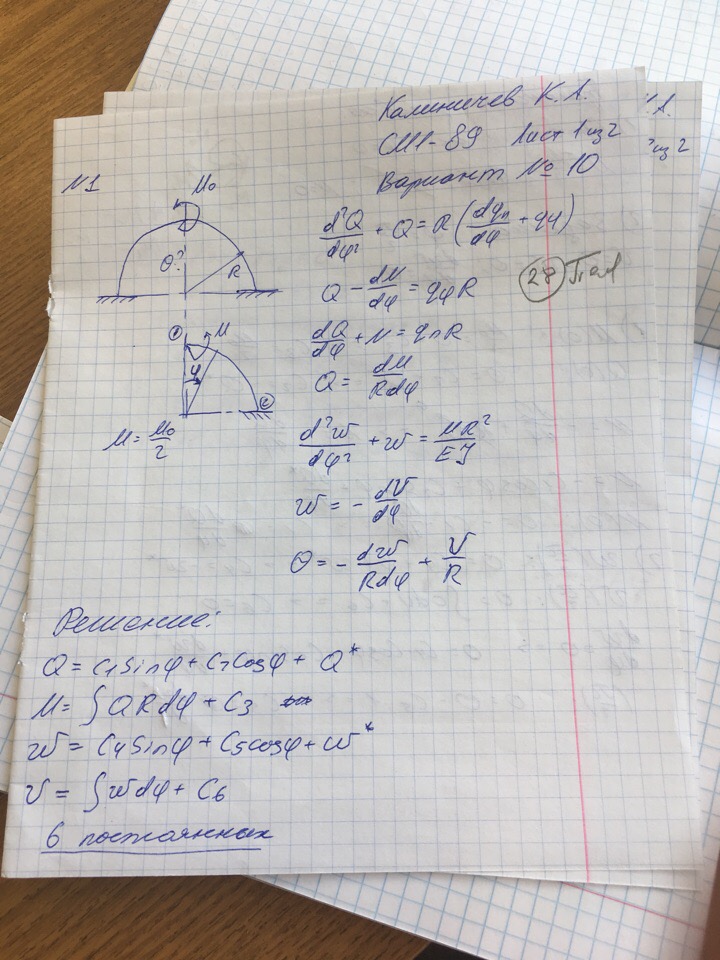 Калиничев К.А.
СМ1-89 Лист 1 из 2
Вариант № 10
N1
M₀
θ?
R
d²Q/dφ² + Q = R(dqₙ/dφ + qφ)
Q - dM/dφ = qφR
28
dQ/dφ + N = qₙR
Q = dM/Rdφ
①
M
φ
②
M = M₀/2
d²w/dφ² + w = MR²/EJ
w = - dV/dφ
θ = - dw/Rdφ + V/R
Решение:
Q = C₁Sinφ + C₂Cosφ + Q*
M = ∫QRdφ + C₃
w = C₄Sinφ + C₅cosφ + w*
V = ∫wdφ + C₆
6 постоянных
.А.
из 2